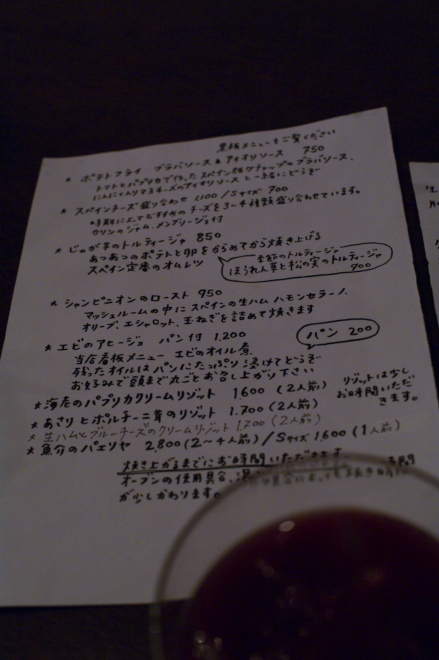 黒板メニューもご覧ください
* ポテトフライ ブラバソース & アイオリソース 750
トマトとパプリカで作ったスペイン版ケチャップのブラバソース、
にんにく入りマヨネーズのアイオリソースと一緒にどうぞ
* スペインチーズ盛り合わせ 1,100 / Sサイズ 700
おすすめのチーズを3〜4種類盛り合わせています。
カリンのジャム、メンブリージョ付
* じゃが芋のトルティージャ 850
あつあつのポテトと卵をからめてから焼き上げる
スペイン定番のオムレツ
季節のトルティージャ
ほうれん草と松の実のトルティージャ
900
* シャンピニオンのロースト 950
マッシュルームの中にスペインの生ハム ハモンセラーノ、
オリーブ、エシャロット、玉ねぎを詰めて焼きます
パン 200
* エビのアヒージョ パン付 1,200
当店看板メニュー エビのオイル煮
残ったオイルはパンにたっぷり浸けてどうぞ
お好みで頭まで丸ごとお召し上がり下さい
* 海老のパプリカクリームリゾット 1,600 (2人前)
* あさりとポルチーニ茸のリゾット 1,700 (2人前)
* 生ハムとブルーチーズのクリームリゾット 1,700 (2人前)
リゾットは少し
お時間いただ
きます。
* 魚介のパエリヤ 2,800 (2〜4人前) / Sサイズ 1,600 (1人前)
焼き上がるまでにお時間いただきます
オーブンの使用具合、
が少しかわります。